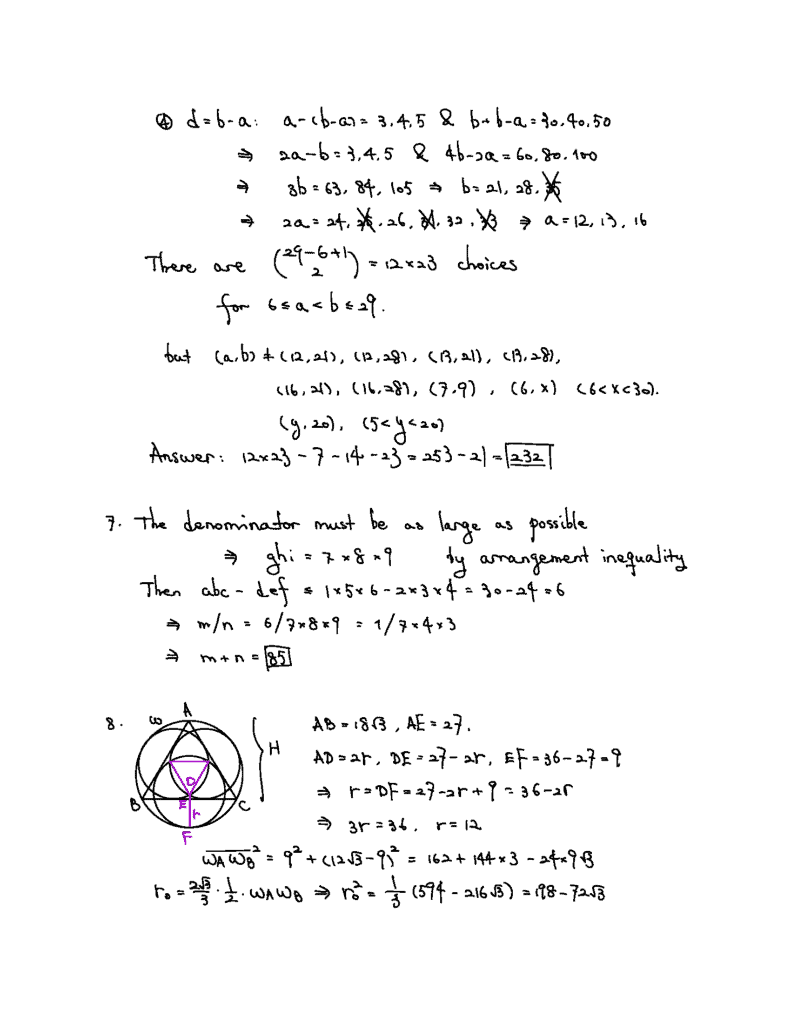 ④ d=b-a: a-(b-a)=3,4,5 & b+b-a=30,40,50
⇒ 2a-b=3,4,5 & 4b-2a=60,80,100
⇒ 3b=63, 84, 105 ⇒ b=21, 28, 35
⇒ 2a=24, 25, 26, 31, 32, 33 ⇒ a=12, 13, 16
There are (29-6+1 2) = 12×23 choices
for 6≤a<b≤29.
but (a,b)≠(12,21), (12,28), (13,21), (13,28),
(16,21), (16,28), (7,9), (6,x) (6<x<30).
(y,20), (5<y<20)
Answer: 12×23-7-14-23=253-21=232
7. The denominator must be as large as possible
⇒ ghi = 7×8×9 by arrangement inequality
Then abc-def ≤ 1×5×6-2×3×4=30-24=6
⇒ m/n = 6/7×8×9 = 1/7×4×3
⇒ m+n=85
8. ω A H B C D E F r
AB=18√3, AE=27.
AD=2r, DE=27-2r, EF=36-27=9
⇒ r=DF=27-2r+9=36-2r
⇒ 3r=36, r=12
ωAωB²=9²+(12√3-9)²=162+144×3-24×9√3
r₀=2√3/3·1/2·ωAωB ⇒ r₀²=1/3(594-216√3)=198-72√3